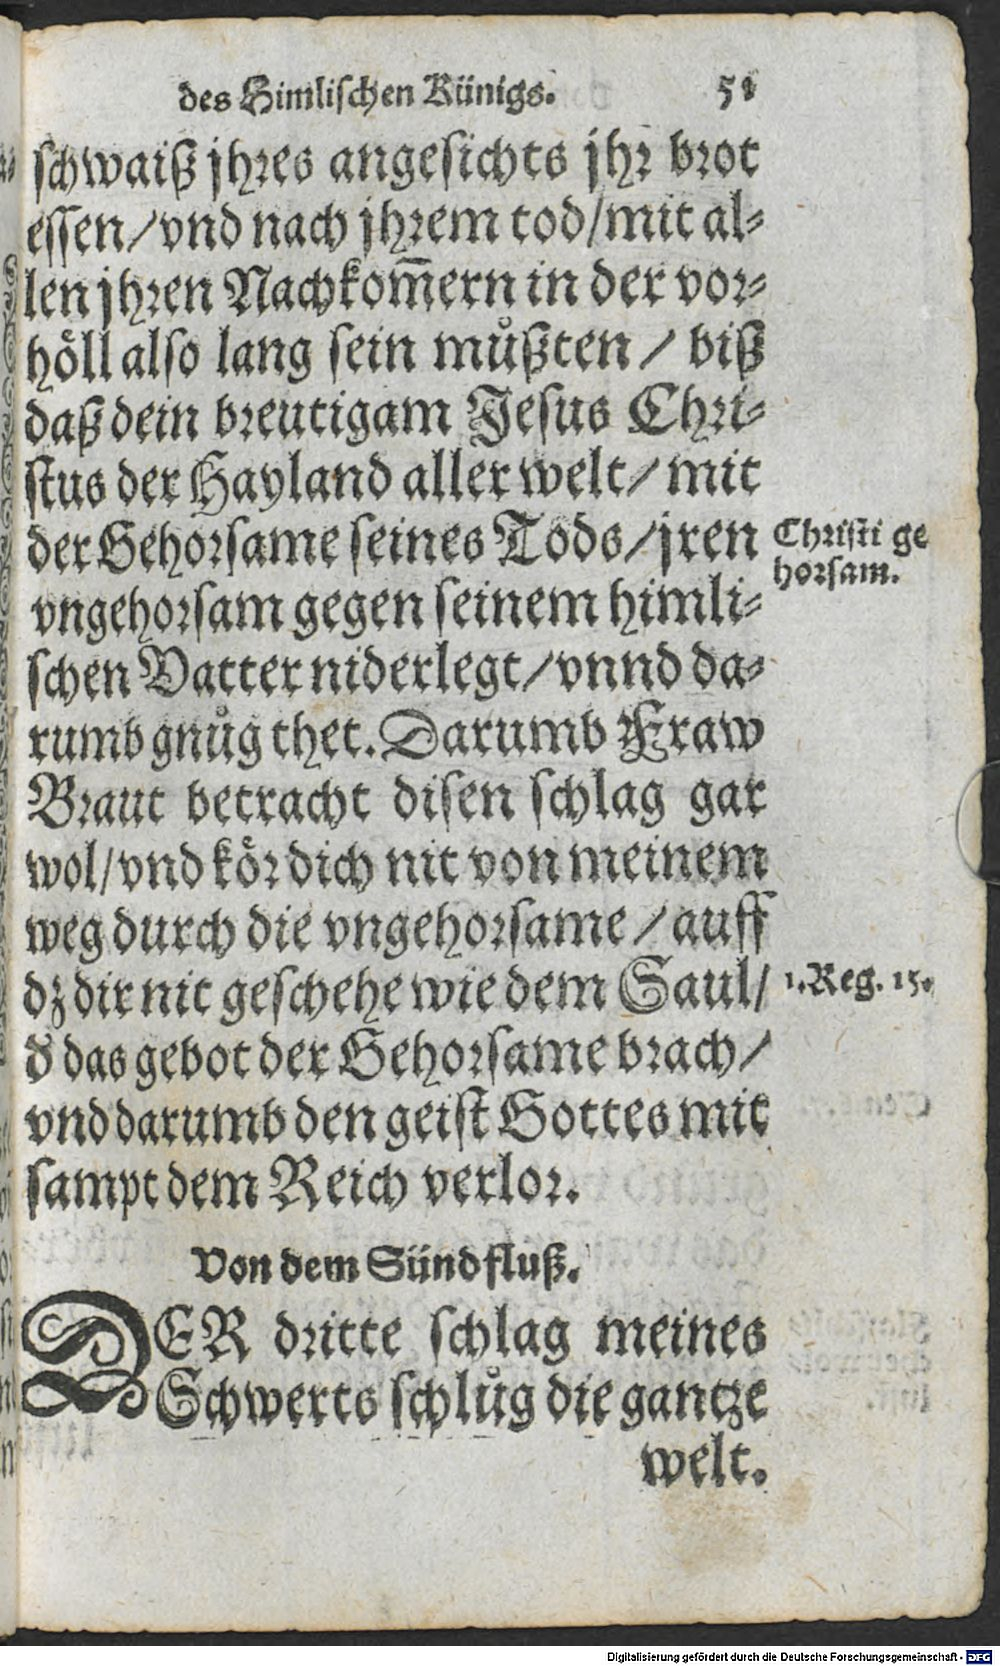 des Himlischen Künigs. 51
schwaiß jhres angesichts jhr brot
essen/vnd nach jhrem tod/mit al-
len jhren Nachkom̄ern in der vor-
höll also lang sein můßten / biß
daß dein breutigam Jesus Chri-
stus der Hayland aller welt/ mit
der Gehorsame seines Tods/jren
Christi ge
horsam.
vngehorsam gegen seinem himli-
schen Vatter niderlegt/vnnd da-
rumb gnůg thet. Darumb Fraw
Braut betracht disen schlag gar
wol/vnd kör dich nit von meinem
weg durch die vngehorsame / auff
dz dir nit geschehe wie dem Saul/
1. Reg. 15.
d̄ das gebot der Gehorsame brach/
vnd darumb den geist Gottes mit
sampt dem Reich verlor.
Von dem Sündfluß.
DER dritte schlag meines
Schwerts schlůg die gantze
welt.
Digitalisierung gefördert durch die Deutsche Forschungsgemeinschaft - DFG